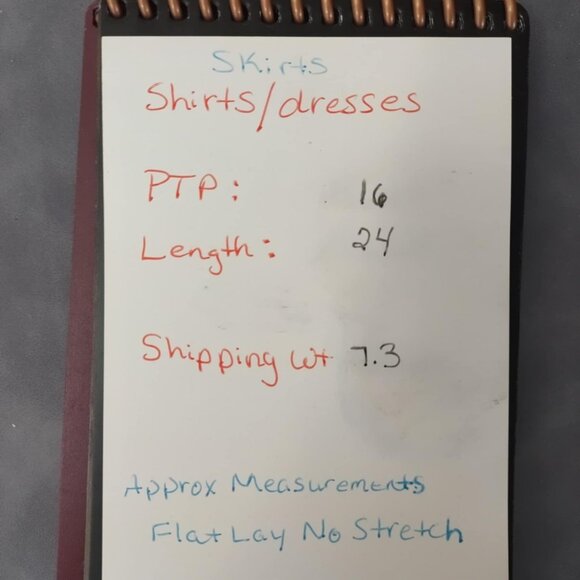 Skirts
Shirts/dresses
PTP: 16
Length: 24
Shipping Wt 7.3
Approx Measurements
Flat Lay No Stretch